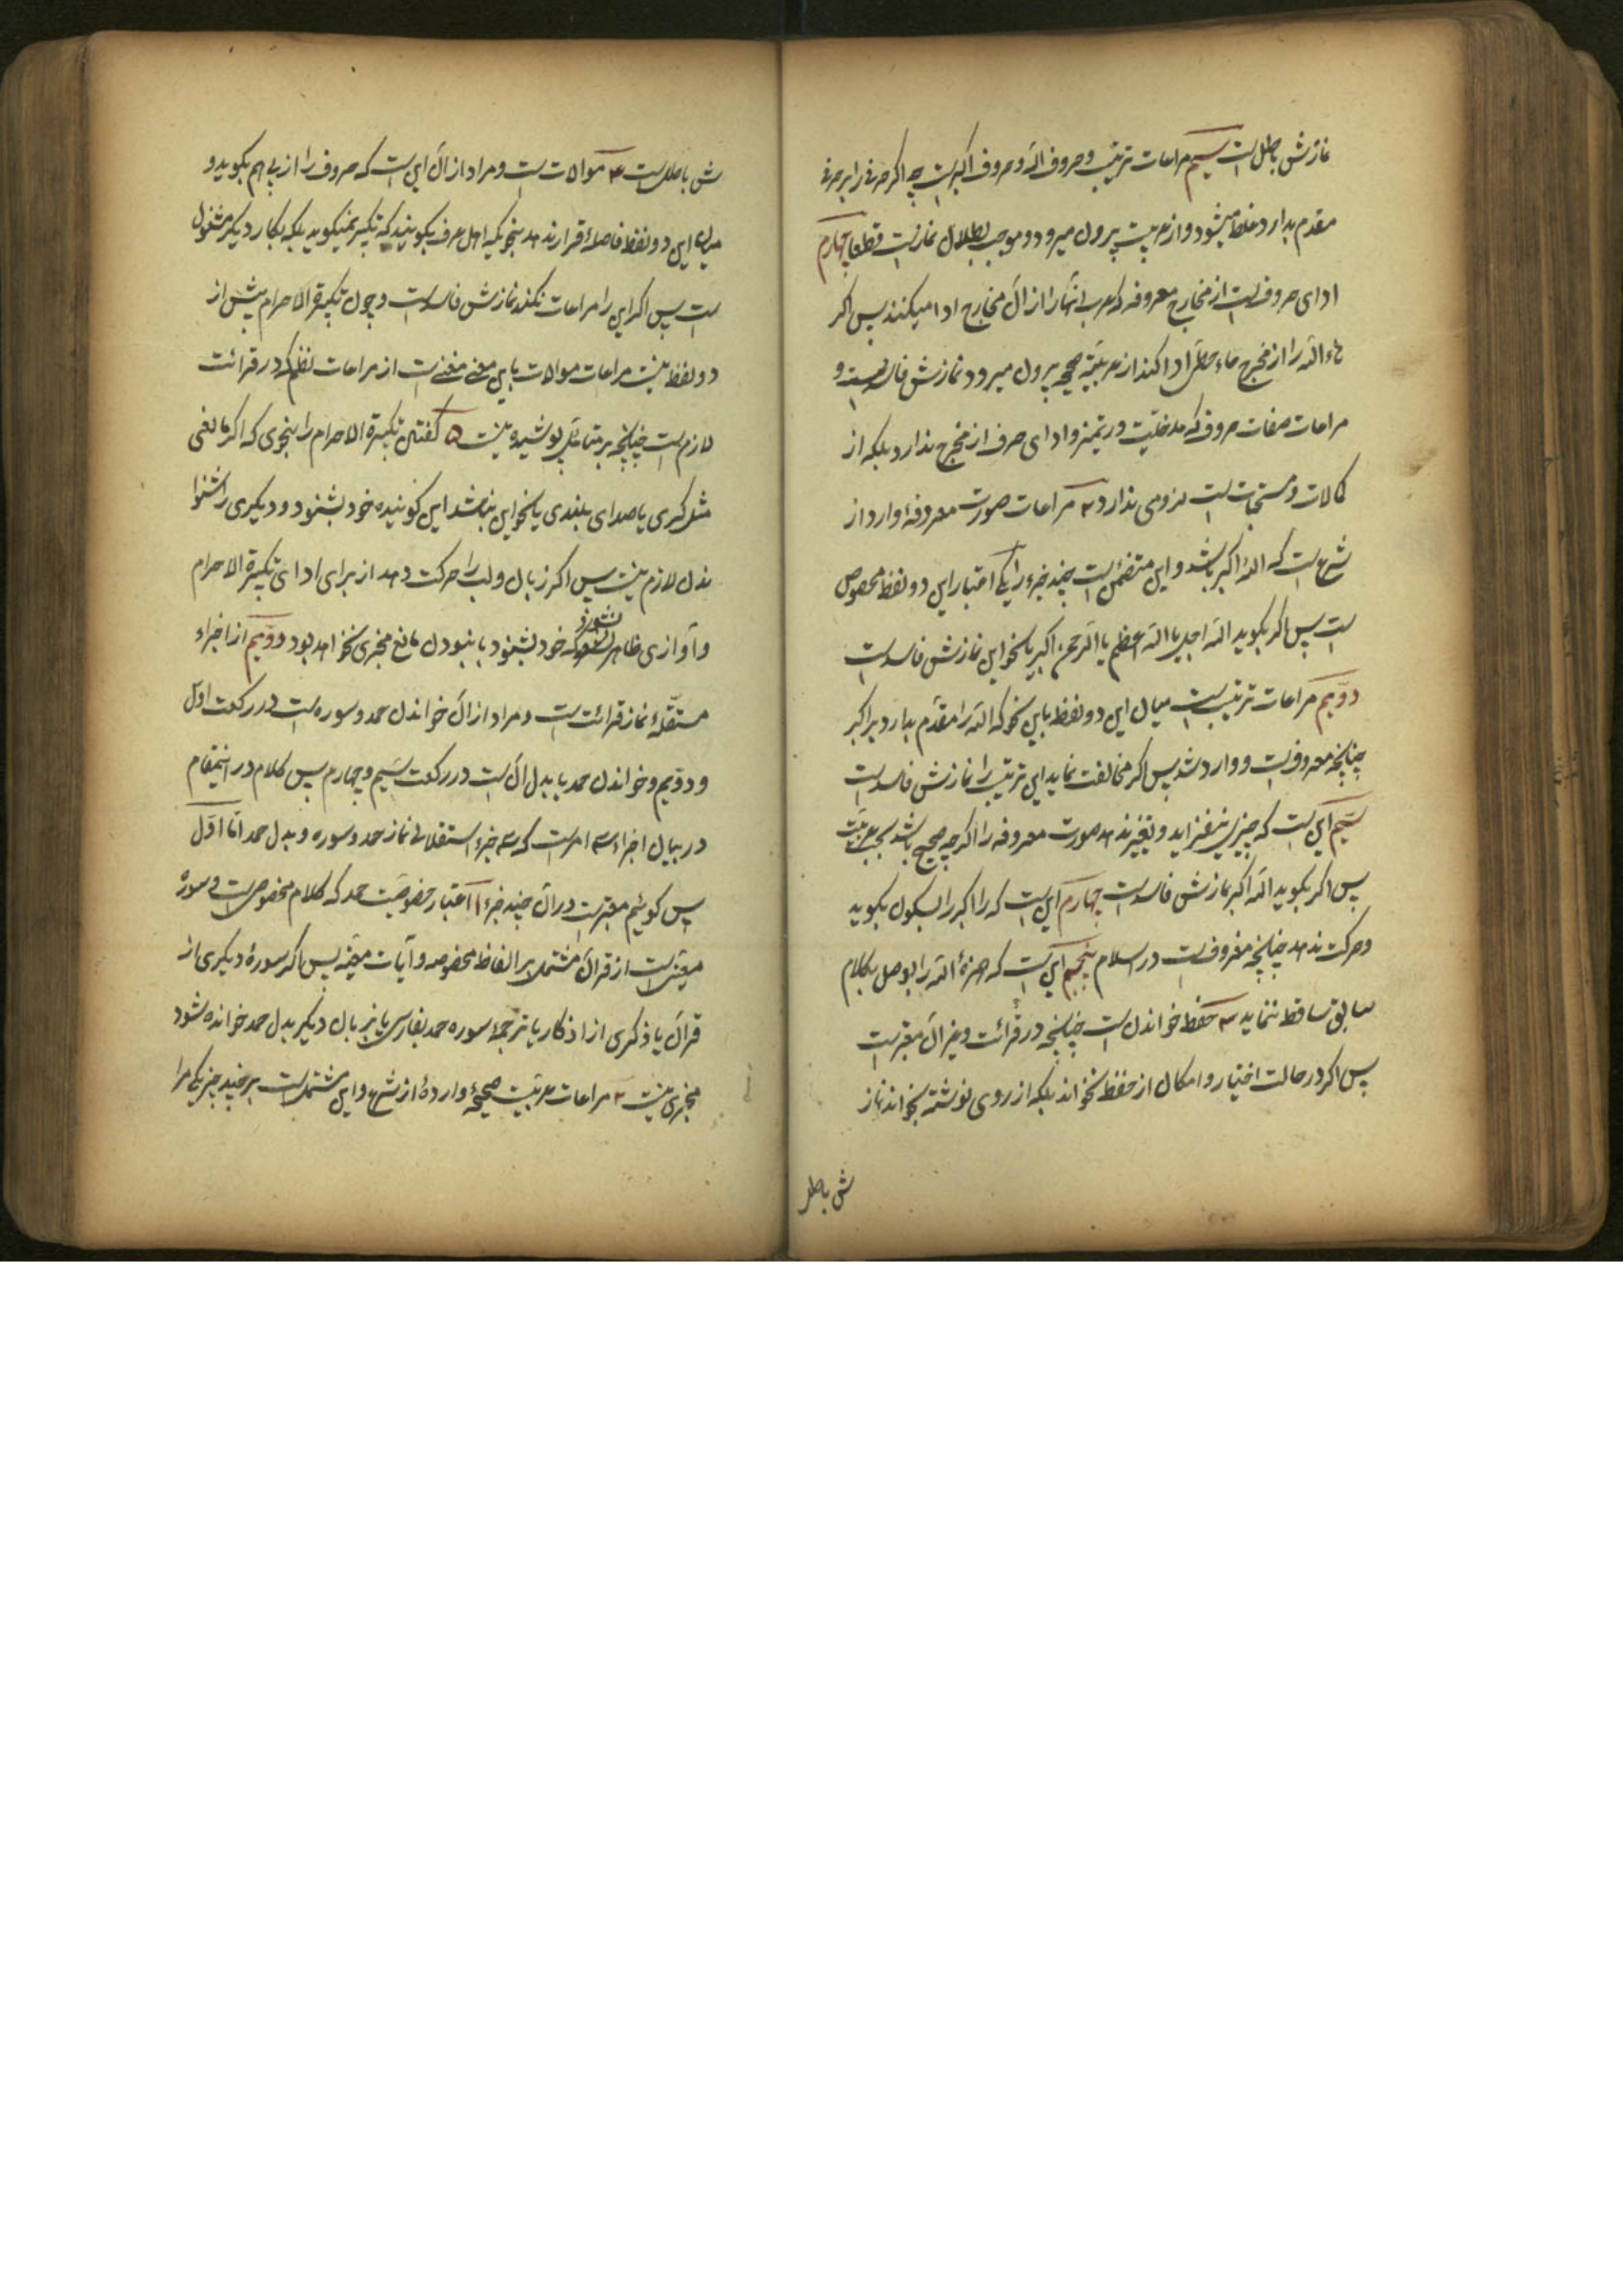 نمازش باطل است سیم مراعات ترتیب و حروف الله و حروف اکبر است چه اگر حرفی را بر حرفی
مقدم بدارد غلط میشود و از عربیت بیرون میرود و موجب بطلان نماز است قطعا چهارم
ادای حروف است از مخارج معروفه که عرب آنها را از آن مخارج ادا میکنند پس اگر
هاء الله را از مخرج حاء حطی ادا کند از عربیته صحیحه بیرون میرود و نمازش فاسد است و
مراعات صفات حروف که مدخلیت در تمیز و ادای حرف از مخرج ندارد بلکه از
کمالات و مستحبات است لزومی ندارد ۲ مراعات صورت معروفه وارد از
شرع است که الله اکبر باشد و این متضمن است چند جزء را یکی اعتبار این دو لفظ مخصوص
است پس اگر بگوید الله اجل یا الله اعظم یا الرحمن اکبر یا نحو این نمازش فاسد است
دویم مراعات ترتیب است میان این دو لفظ باین نحو که الله را مقدم بدارد بر اکبر
چنانچه معروف است و وارد شد پس اگر مخالفت نماید این ترتیب را نمازش فاسد است
سیم این است که چیزی نیفزاید و تغییر ندهد صورت معروفه را اگر چه صحیح باشد بحسب عربیت
پس اگر بگوید الله اکبر نمازش فاسد است چهارم این است که راء اکبر را بسکون بگوید
و حرکت ندهد چنانچه معروف است در اسلام پنجم این است که همزهٔ الله را بوصل بکلام
سابق ساقط ننماید ۳ حفظ خواندن است چنانچه در قرائت و غیر آن معتبر است
پس اگر در حالت اختیار و امکان از حفظ نخواند بلکه از روی نوشته بخواند نماز
ش باطل
ش باطل است ۴ موالات است و مراد از آن این است که حروف را از پی هم بگوید و
میان این دو لفظ فاصله قرار ندهد بنحویکه اهل عرف بگویند که تکبیر نمیگوید بلکه بکار دیگر مشغول
است پس اگر این را مراعات نکند نمازش فاسد است و چون تکبیرة الاحرام بیش از
دو لفظ نیست مراعات موالات باین معنی مغنی است از مراعات نظم که در قرائت
لازم است چنانچه بر متامل پوشیده نیست ۵ گفتن تکبیرة الاحرام را بنحوی که اگر مانعی
مثل کری یا صدای بلندی یا نحو این نباشد این گوینده خود بشنود و دیگری را شنوا
ندن لازم نیست پس اگر زبان و لب را حرکت دهد از برای ادای تکبیرة الاحرام
و آوازی ظاهر نشود که خود بشنود با نبودن مانع مجزی نخواهد بود دویم از اجزاء
مستقلهٔ نماز قرائت است و مراد از آن خواندن حمد و سوره است در رکعت اول
و دویم و خواندن حمد یا بدل آن است در رکعت سیم و چهارم پس کلام در اینمقام
در بیان اجزاء سه امر است که سه جزء استقلالی نماز حمد و سوره و بدل حمد اما اول
پس گوئیم معتبر است در آن چند جزء ۱ اعتبار خصوصیت حمد که کلام مخصوص است و سورهٔ
معینی است از قرآن مشتمل بر الفاظ مخصوصه و آیات معینه پس اگر سورهٔ دیگری از
قرآن یا ذکری از اذکار یا ترجمهٔ سوره حمد بفارسی یا بزبان دیگر بدل حمد خوانده شود
مجزی نیست ۲ مراعات عربیت صحیحهٔ واردهٔ از شرع و این مشتمل است بر چند چیز یکی مرا